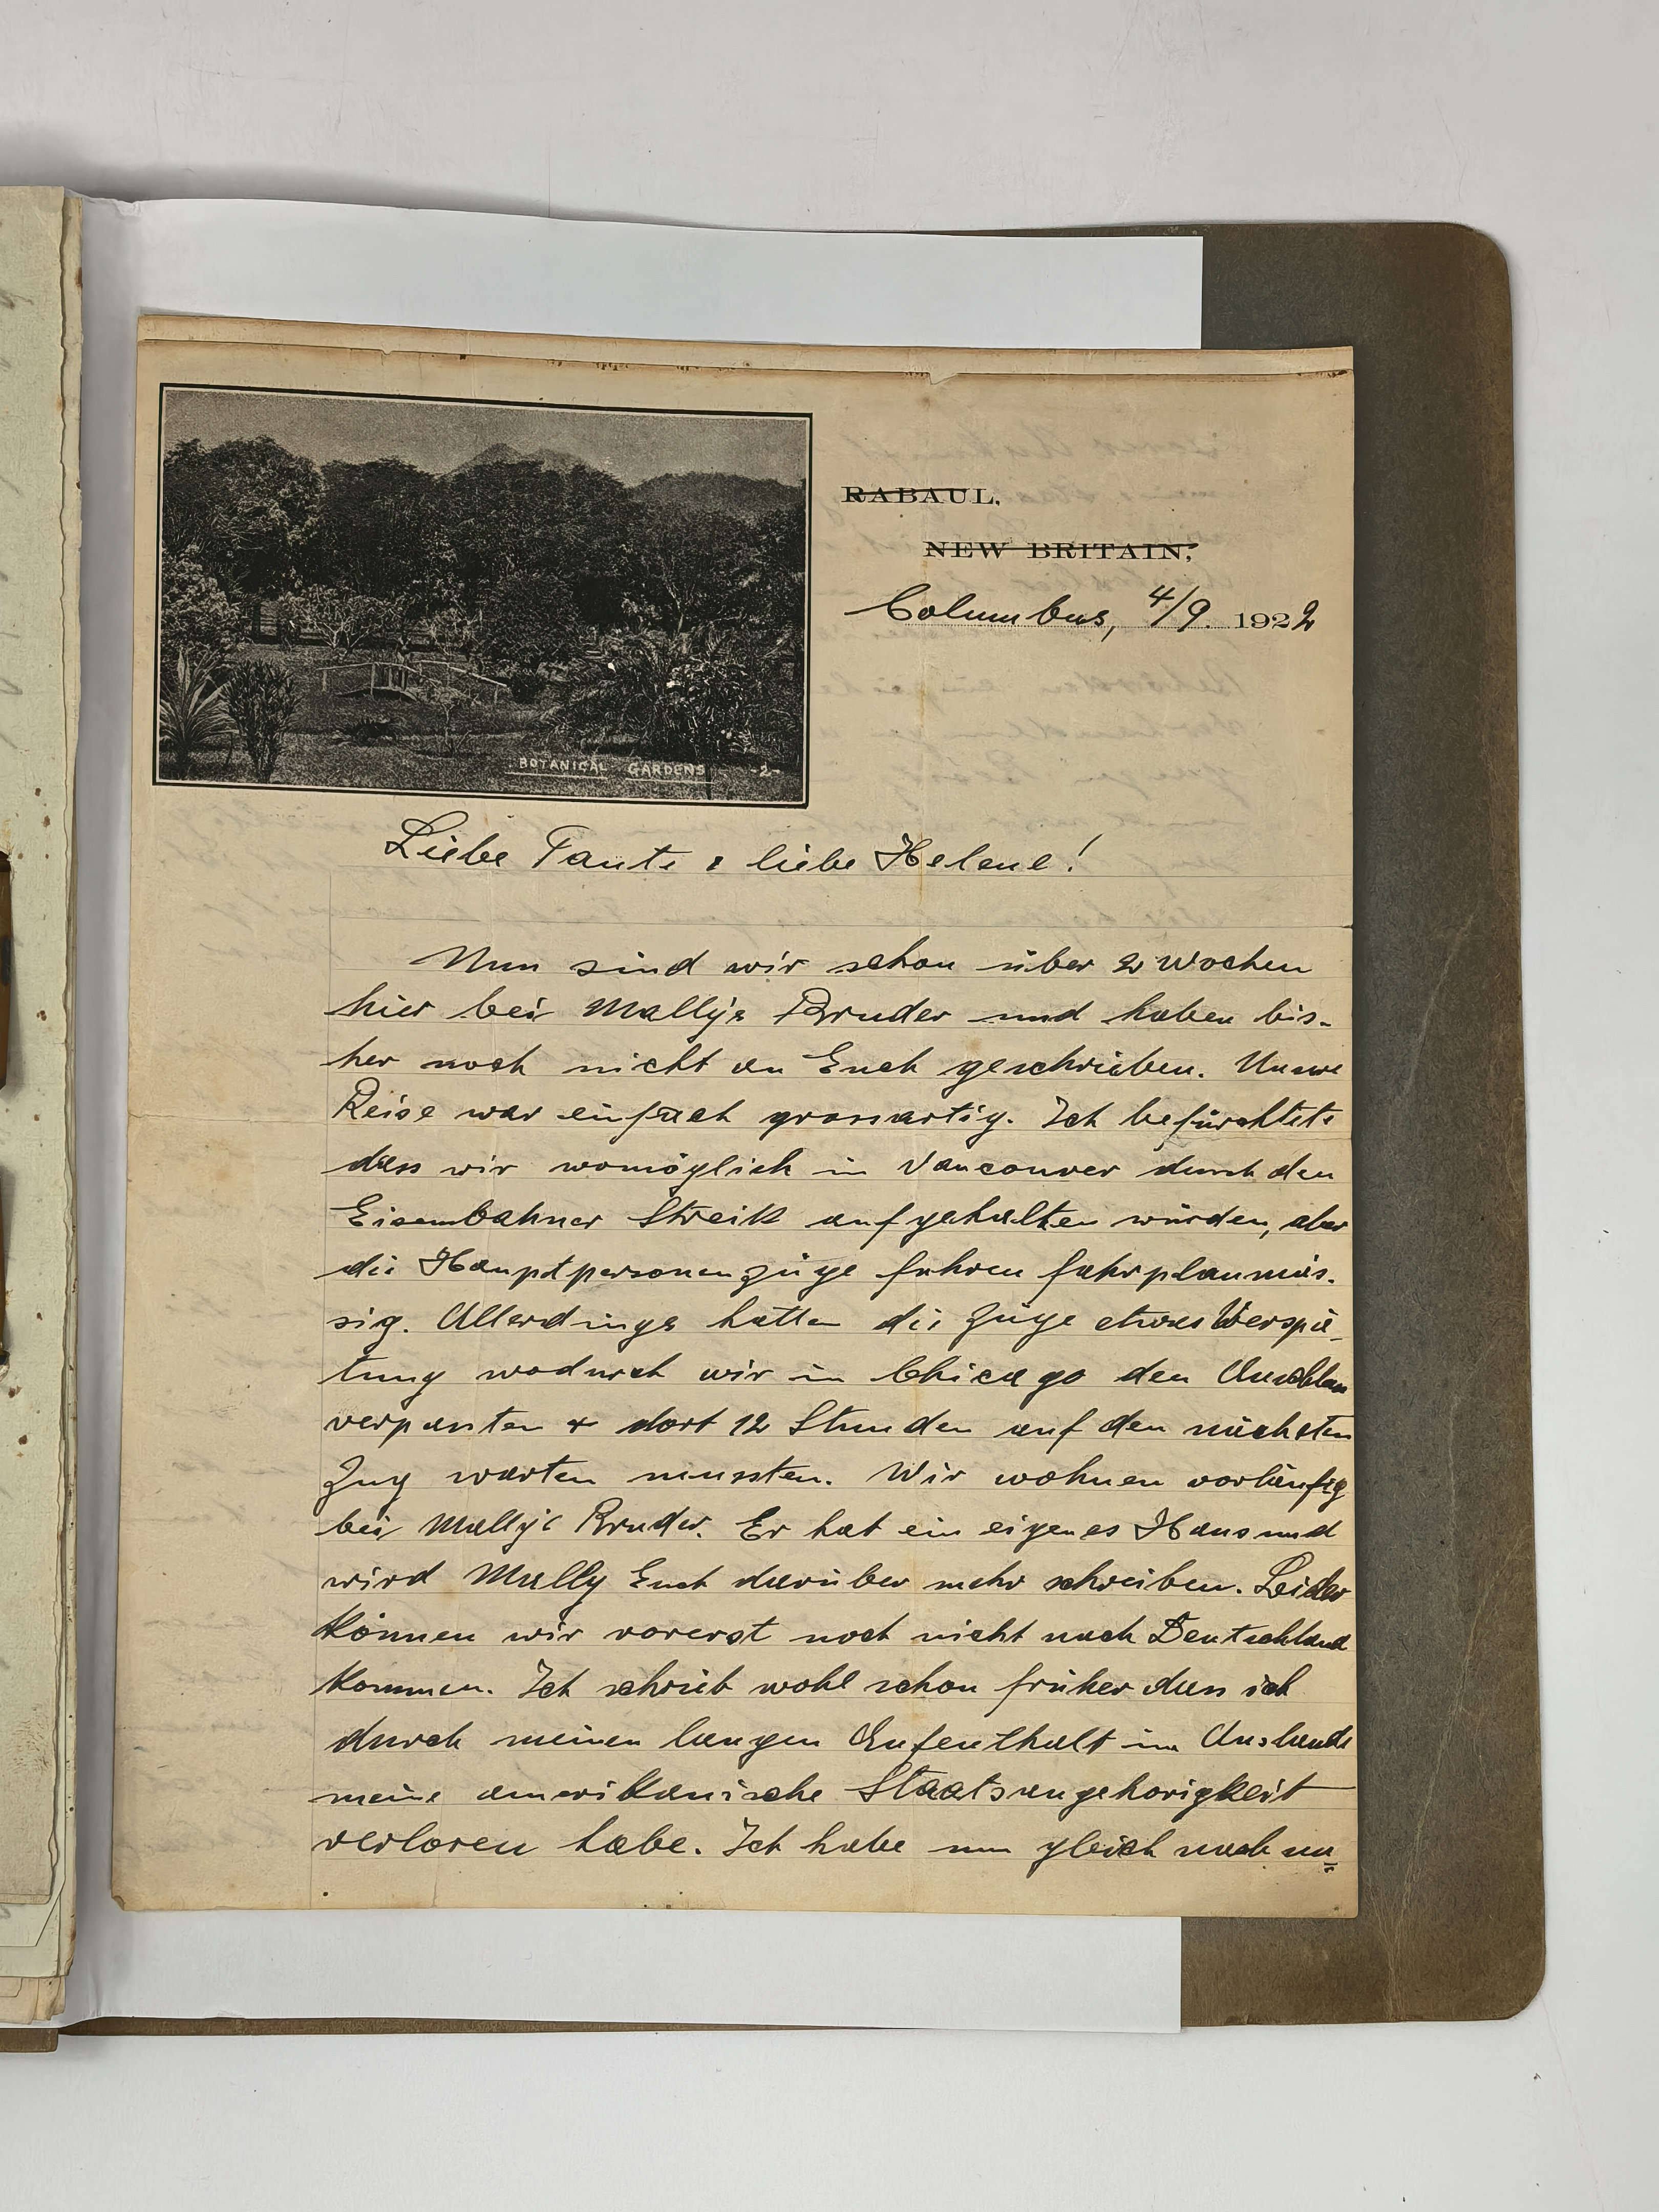 RABAUL,
NEW BRITAIN,
Columbus, 4/9. 1922
BOTANICAL GARDENS -2-
Liebe Tante & liebe Helene!
Nun sind wir schon über 2 Wochen
hier bei Mally's Bruder und haben bis-
her noch nicht an Euch geschrieben. Unsre
Reise war einfach grossartig. Ich befürchtete
dass wir womöglich in Vancouver durch den
Eisenbahner Streik aufgehalten würden, aber
die Hauptpersonenzüge fuhren fahrplanmäs-
sig. Allerdings hatten die Züge etwas Verspä-
tung wodurch wir in Chicago den Anschluss
verpassten & dort 12 Stunden auf den nächsten
Zug warten mussten. Wir wohnen vorläufig
bei Mally's Bruder. Er hat ein eigenes Haus und
wird Mally Euch darüber mehr schreiben. Leider
können wir vorerst noch nicht nach Deutschland
kommen. Ich schrieb wohl schon früher dass ich
durch meinen langen Aufenthalt im Auslande
meine amerikanische Staatsangehorigkeit
verloren habe. Ich habe nun gleich nach un=